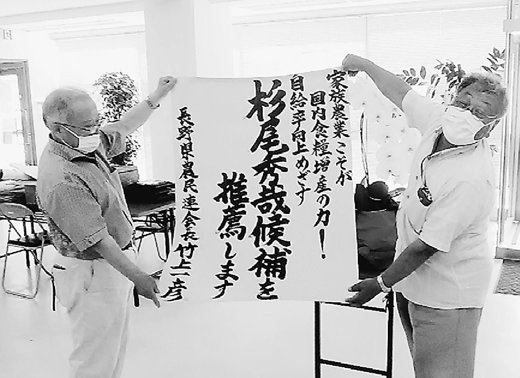 家族農業こそが
国内食糧増産の力!
自給率向上めざす
杉尾秀哉候補を
推薦します
長野県農民連会長竹上一彦